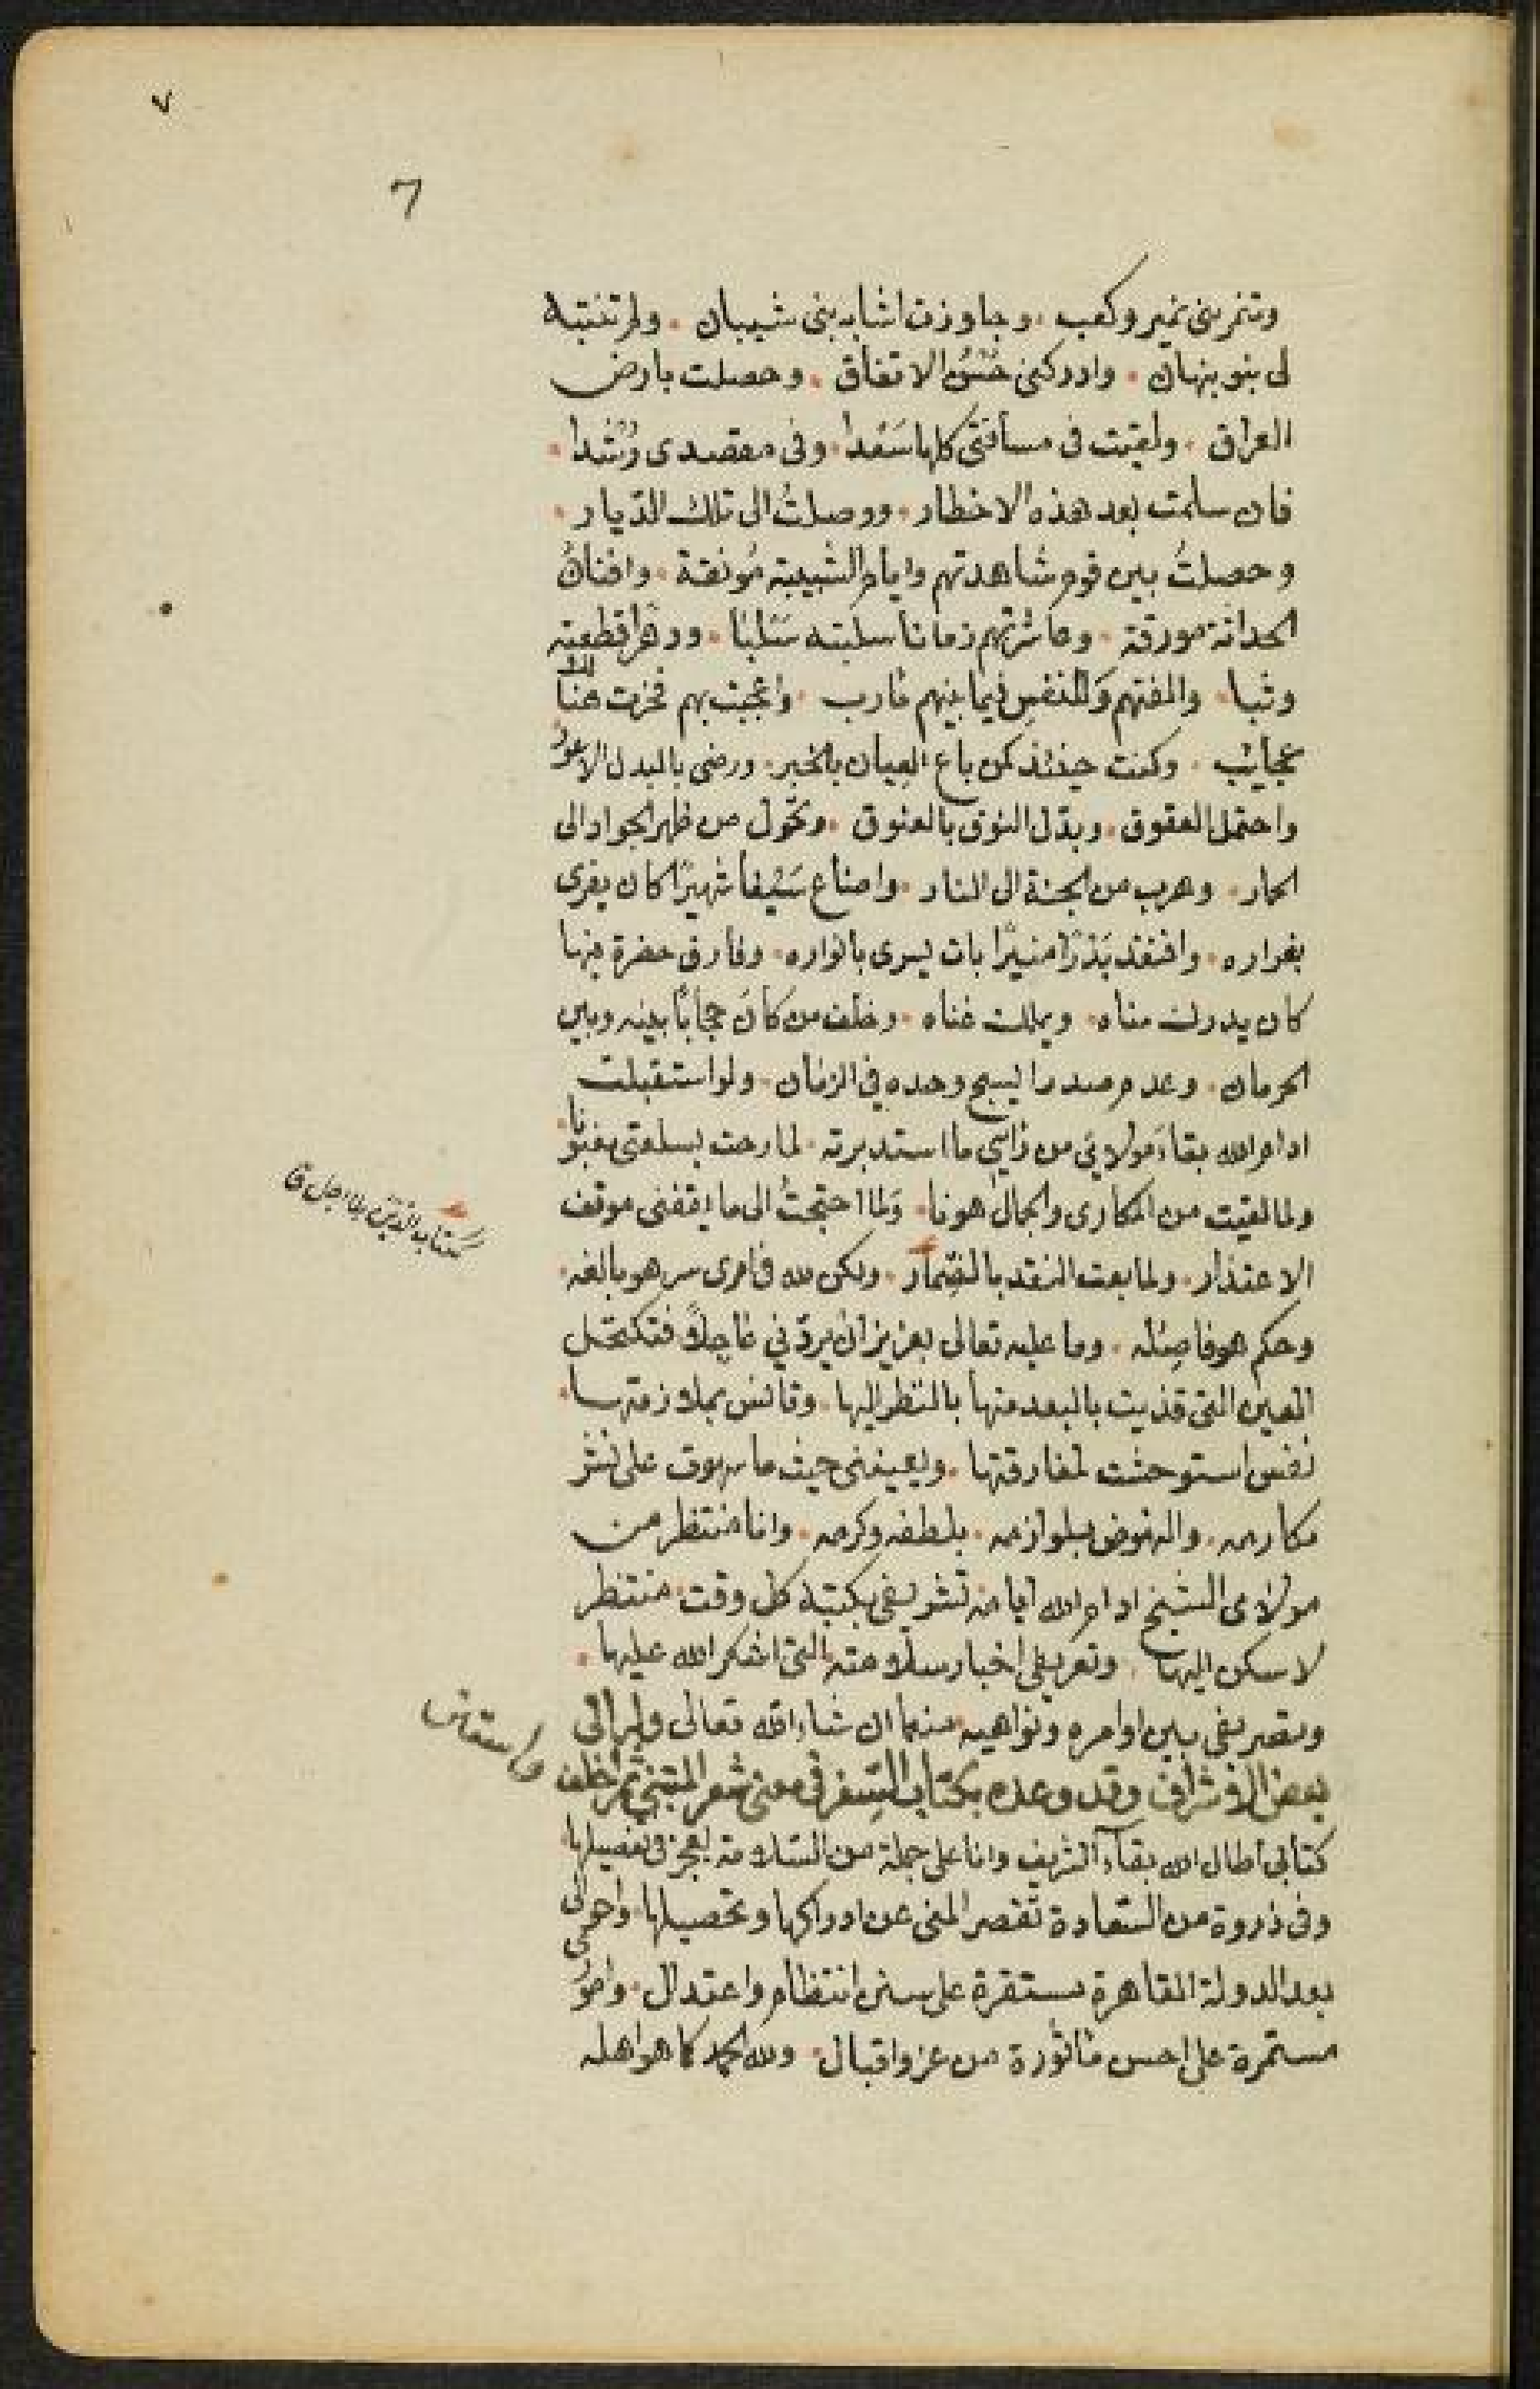 ٧
7
وتنمر بنى نمير وكعب . وجاوزت اشابه بنى شيبان . ولم تنتبه
لى بنو بنهان . وادركنى حُسْنُ الاتفاق . وحصلت بارض
العراق . ولقيت فى مسافتى كلها سَعْدا . وفى مقصدى رُشْدا .
فان سلمت بعد هذه الاخطار . ووصلتُ الى تلك الدّيار .
وحصلتُ بين قوم شاهدتهم وايام الشبيبة مُونقة . وافنانُ
الحداثة مورقة . وعاشرتهم زمانا سلبته سَلبًا . ودهرا قطعته
وثبا . والفتهم وَللنفس فيما بينهم مارب . واعجبت بهم فخزت
عجايب . وكنت حينئذ كمن باع العِيان بالخبر . ورضى بالبدل الاعور
واحتمل العقوق . وبدّل النوق بالعنوق . وتحول من ظهر الجواد الى
الحمار . وهرب من الجنة الى النار . واضاع سَيْفا شهيرًا كان يفرى
بغراره . وافتقد بَدْرًا منيرًا بات يسرى بانواره . وفارق حضرة بها
كان يدرك مناه . ويملك غناه . وخلف من كانَ حجابًا بينه وبين
الحرمان . وعدم صدرا نسيج وحده فى الزمان . ولو استقبلت
ادام الله بقاءَ مولاىَ من رايى ما استدبرته . لما رحت بسلعتى مغبونا .
ولما لقيت من المكارى والجمال هونا . وَلما احتجتُ الى ما يقفنى موقف
الاعتذار . ولما بعت النقد بالضِمار . ولكن لله فى امرى سر هو بالغه .
وحكم هو فاصله . وما عليه تعالى بعزيز ان يردّني عَاجلاً فتكتحل
العين التى قذيت بالبعد منها بالنظر اليها . وتانس بملازمتها .
نفس استوحشت لمفارقتها . ويعيننى حيث ما سهوت على نشر
مكارمه . والنهوض بلوازمه . بلطفه وكرمه . وانا منتظر من
مولاى الشيخ ادام الله ايامه تشريفى بكتبه كل وقت . منتظر
لاسكن اليها . وتعريفى اخبار سلامته التى اشكر الله عليها .
وتصريفى بين اوامره ونواهيه منعما ان شاء الله تعالى وله الى
بعض الاشراف وقد وعده بكتاب التسفر فى معنى شعر المتنبى ثم اخلف
كتابى اطال الله بقاءَ الشريف وانا على جملة من السّلامة يعجز فى تفصيلها
وفى ذروة من السّعادة تقصر المنى عن ادراكها وتحصيلها . واحوالى
بعد الدولة القاهرة مستقرة على سنن انتظام واعتدال . وامورى
مستمرة على احسن ماثورة من عز واقبال . ولله الحمد كما هو اهله